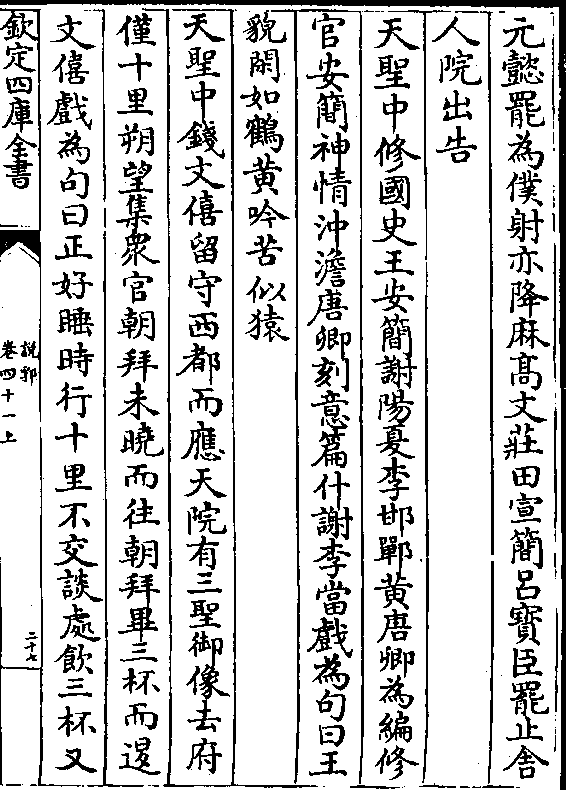 元懿罷為僕射亦降麻髙文莊田宣簡吕寳臣罷止舍
人院出告
天聖中修國史王安簡謝陽夏李邯鄲黄唐卿為編修
官安簡神情沖澹唐卿刻意篇什謝李當戲為句曰王
貌閑如鶴黄吟苦似猿
天聖中錢文僖留守西都而應天院有三聖御像去府
僅十里朔望集衆官朝拜未曉而往朝拜畢三杯而退
文僖戲為句曰正好睡時行十里不交談處飲三杯又
欽定四庫全書
說郛
卷四十一上
二十七